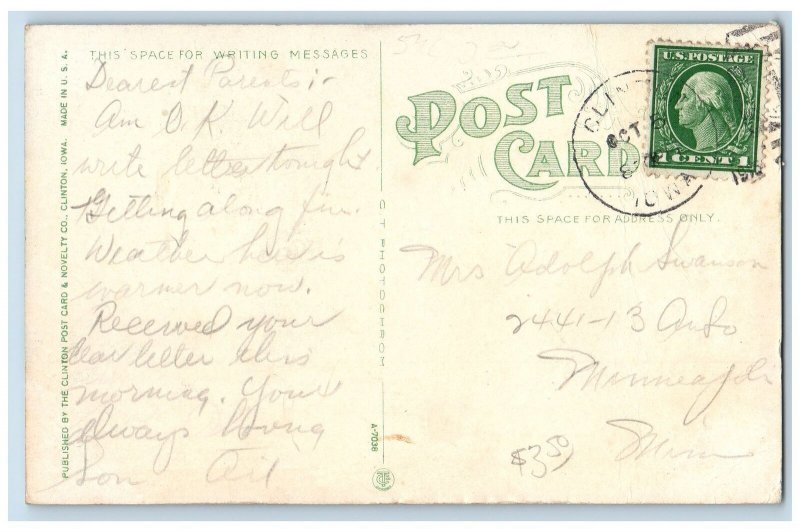 THIS SPACE FOR WRITING MESSAGES
Dearest Parents:-
Am O.K. Will
write letter tonight
Getting along fine.
Weather here is
warmer now.
Received your
dear letter this
morning. Your
always loving
son
PUBLISHED BY THE CLINTON POST CARD & NOVELTY CO., CLINTON, IOWA. MADE IN U.S.A.
C T PHOTOCHROM
A-7038
POST
CARD
THIS SPACE FOR ADDRESS ONLY.
U.S. POSTAGE
1 CENT 1
CLINTON
OCT
IOWA
Mrs Adolph Swanson
2441-13 Ave So
Minneapolis
Minn
$3.50